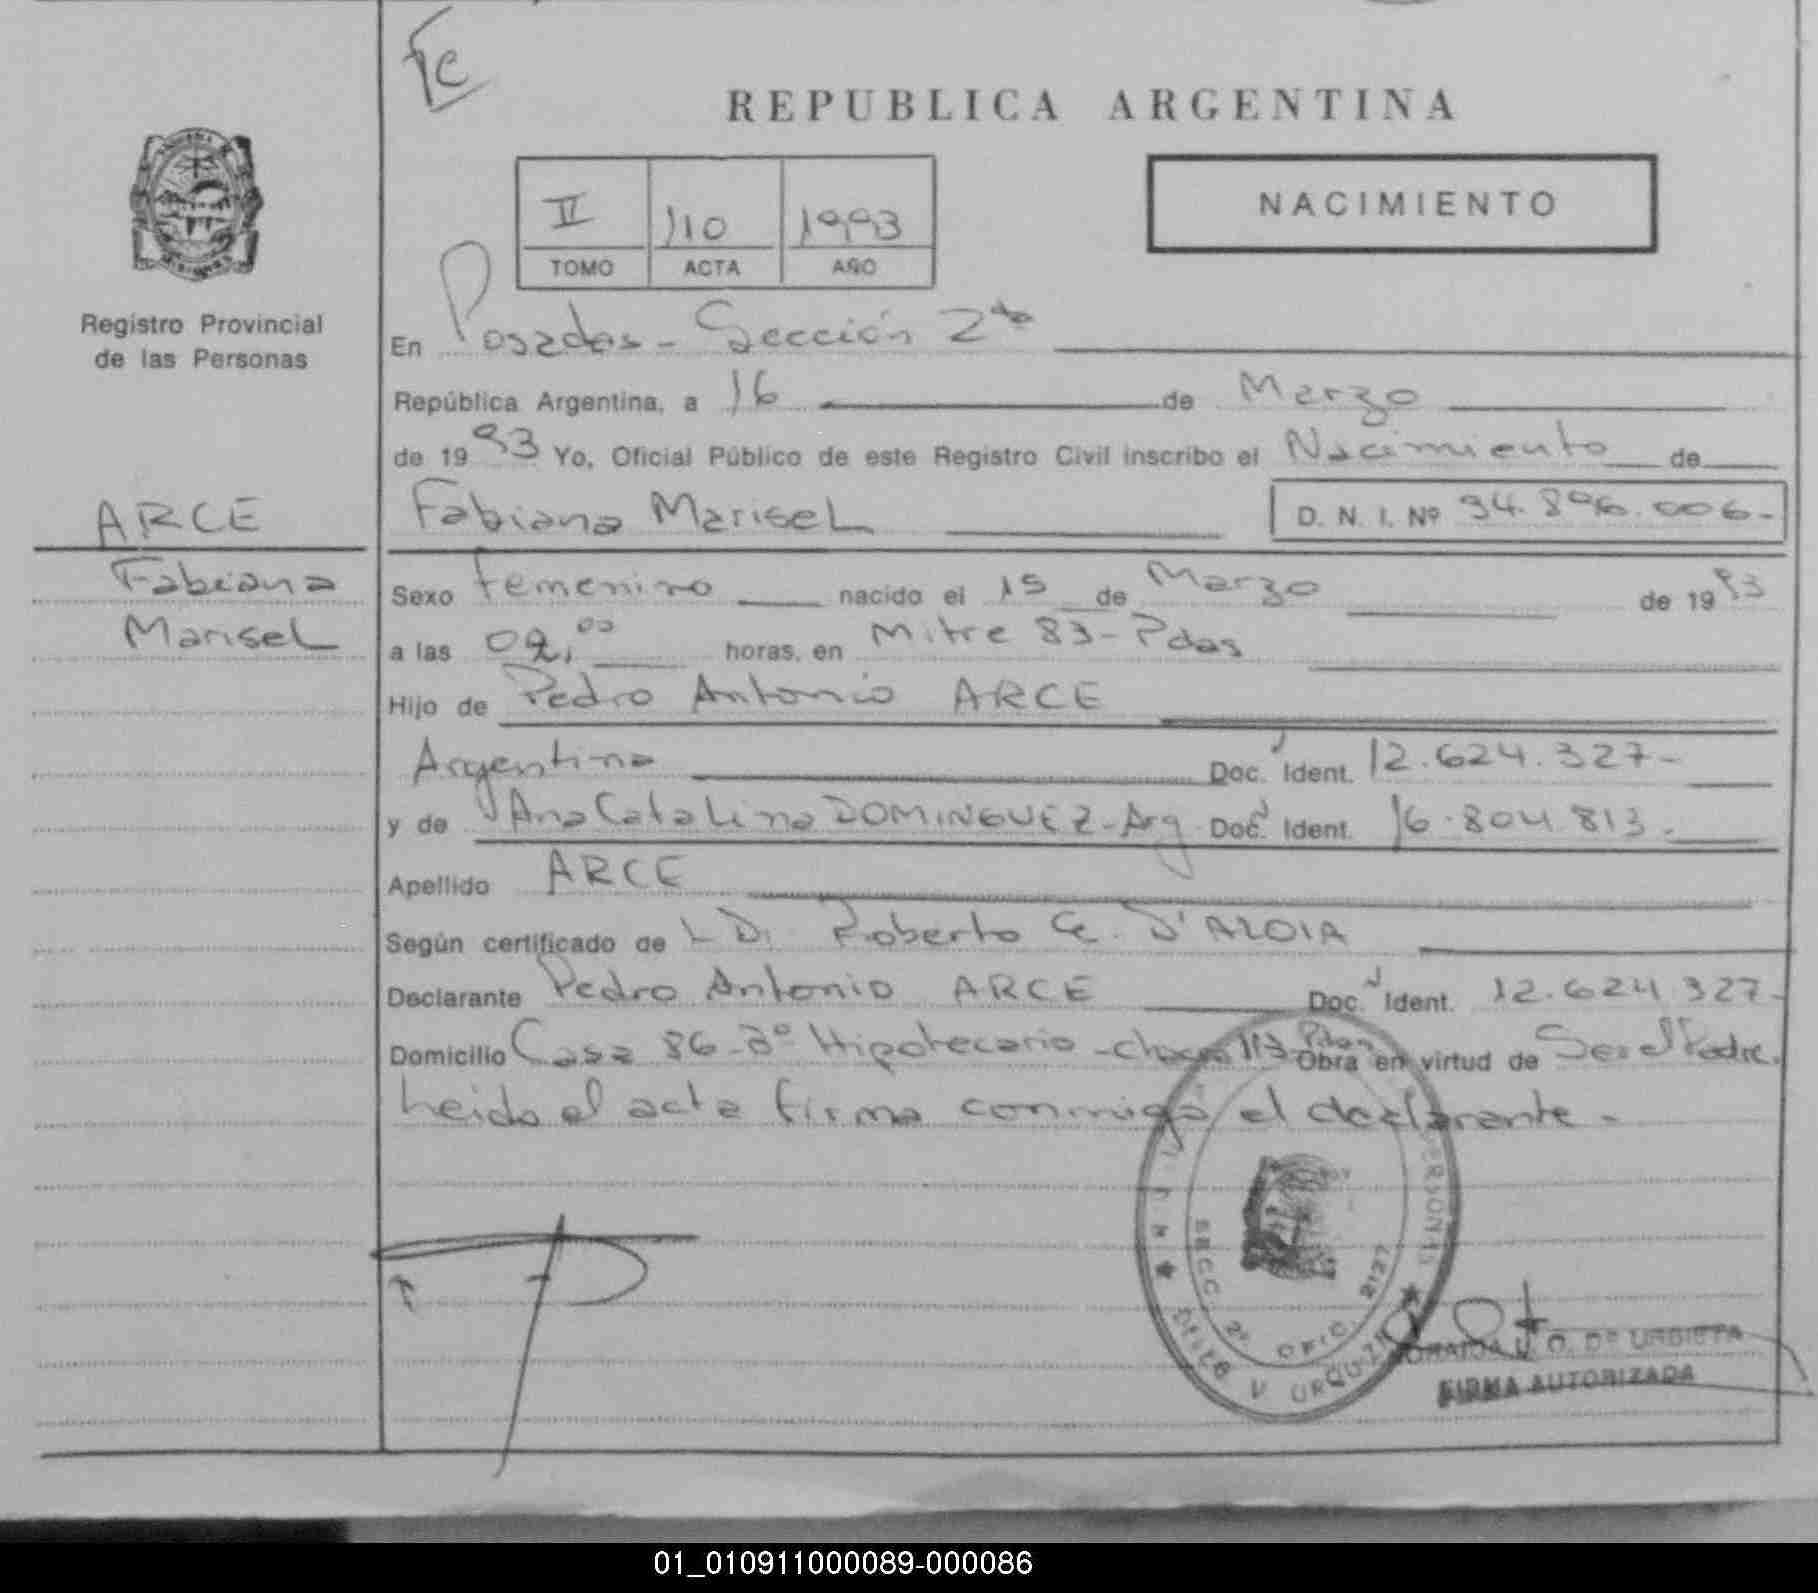 Fc
REPUBLICA ARGENTINA
II 110 1993
TOMO ACTA AÑO
NACIMIENTO
Registro Provincial
de las Personas
En Posadas - Sección 2da
República Argentina, a 16 de Marzo
de 1993 Yo, Oficial Público de este Registro Civil inscribo el Nacimiento de
ARCE
Fabiana Marisel
Fabiana Marisel D. N. I. Nº 34.896.006-
Sexo Femenino nacido el 15 de Marzo de 1993
a las horas, en Mitre 83 - Pdas
Hijo de Pedro Antonio ARCE
Argentino Doc. Ident. 12.624.327-
y de Ana Catalina DOMINGUEZ - Arg. Doc. Ident. 16.804.813.
Apellido ARCE
Según certificado de Roberto D'ALOIA
Declarante Pedro Antonio ARCE Doc. Ident. 12.624.327-
Domicilio Casa 86 - Hipotecario - chacra 113 Pdas Obra en virtud de Ser el Padre.
Leido el acta firma conmigo el declarante -
SECC. 2º OFIC. 2127
URQUIZA
U. O. DE URBIETA
FIRMA AUTORIZADA
01_010911000089-000086